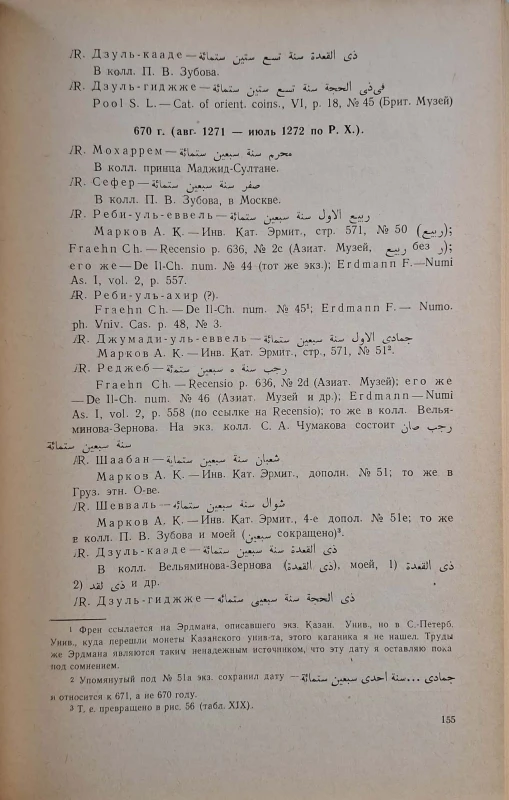 Ꞛ. Дзуль-кааде — ذى القعدة سنة تسع ستين ستمائة
В колл. П. В. Зубова.
Ꞛ. Дзуль-гиджже — فى ذى الحجة سنة تسع ستين ستمائة
Pool S. L. — Cat. of orient. coins., VI, p. 18, № 45 (Брит. Музей)
670 г. (авг. 1271 — июль 1272 по Р. Х.).
Ꞛ. Мохаррем — محرم سنة سبعين ستمائة
В колл. принца Маджид-Султане.
Ꞛ. Сефер — صفر سنة سبعين ستمائة
В колл. П. В. Зубова, в Москве.
Ꞛ. Реби-уль-еввель — ربيع الاول سنة سبعين ستمائة
Марков А. К. — Инв. Кат. Эрмит., стр. 571, № 50 (ربيع);
Fraehn Ch. — Recensio p. 636, № 2c (Азиат. Музей, ربيع без ر);
его же — De Il-Ch. num. № 44 (тот же экз.); Erdmann F. — Numi
As. I, vol. 2, p. 557.
Ꞛ. Реби-уль-ахир (?).
Fraehn Ch. — De Il-Ch. num. № 45¹; Erdmann F. — Numo.
ph. Vniv. Cas. p. 48, № 3.
Ꞛ. Джумади-уль-еввель — جمادى الاول سنة سبعين ستمائة
Марков А. К. — Инв. Кат. Эрмит., стр., 571, № 51².
Ꞛ. Реджеб — رجب سنة ه سبعين ستمائة
Fraehn Ch. — Recensio p. 636, № 2d (Азиат. Музей); его же
— De Il-Ch. num. № 46 (Азиат. Музей и др.); Erdmann — Numi
As. I, vol. 2, p. 558 (по ссылке на Recensio); то же в колл. Велья-
минова-Зернова. На экз. колл. С. А. Чумакова состоит رجب صان
سنة سبعين ستمائة
Ꞛ. Шаабан — شعبان سنة سبعين ستماية
Марков А. К. — Инв. Кат. Эрмит., дополн. № 51; то же в
Груз. этн. О-ве.
Ꞛ. Шевваль — شوال سنة سبعين ستمائه
Марков А. К. — Инв. Кат. Эрмит., 4-е допол. № 51e; то же
в колл. П. В. Зубова и моей (سبعين сокращено)³.
Ꞛ. Дзуль-кааде — ذى القعدة سنة سبعين ستمائة
В колл. Вельяминова-Зернова (ذى القعدة), моей, 1) ذى القعدة
2) ذى لقد и др.
Ꞛ. Дзуль-гиджже — ذى الحجة سنة سبعين ستمائة
1 Френ ссылается на Эрдмана, описавшего экз. Казан. Унив., но в С.-Петерб.
Унив., куда перешли монеты Казанского унив-та, этого каганика я не нашел. Труды
же Эрдмана являются таким ненадежным источником, что эту дату я оставляю пока
под сомнением.
2 Упомянутый под № 51a экз. сохранил дату — جمادى ... سنة احدى سبعين ستمائة
и относится к 671, а не 670 году.
3 Т. е. превращено в рис. 56 (табл. XIX).
155